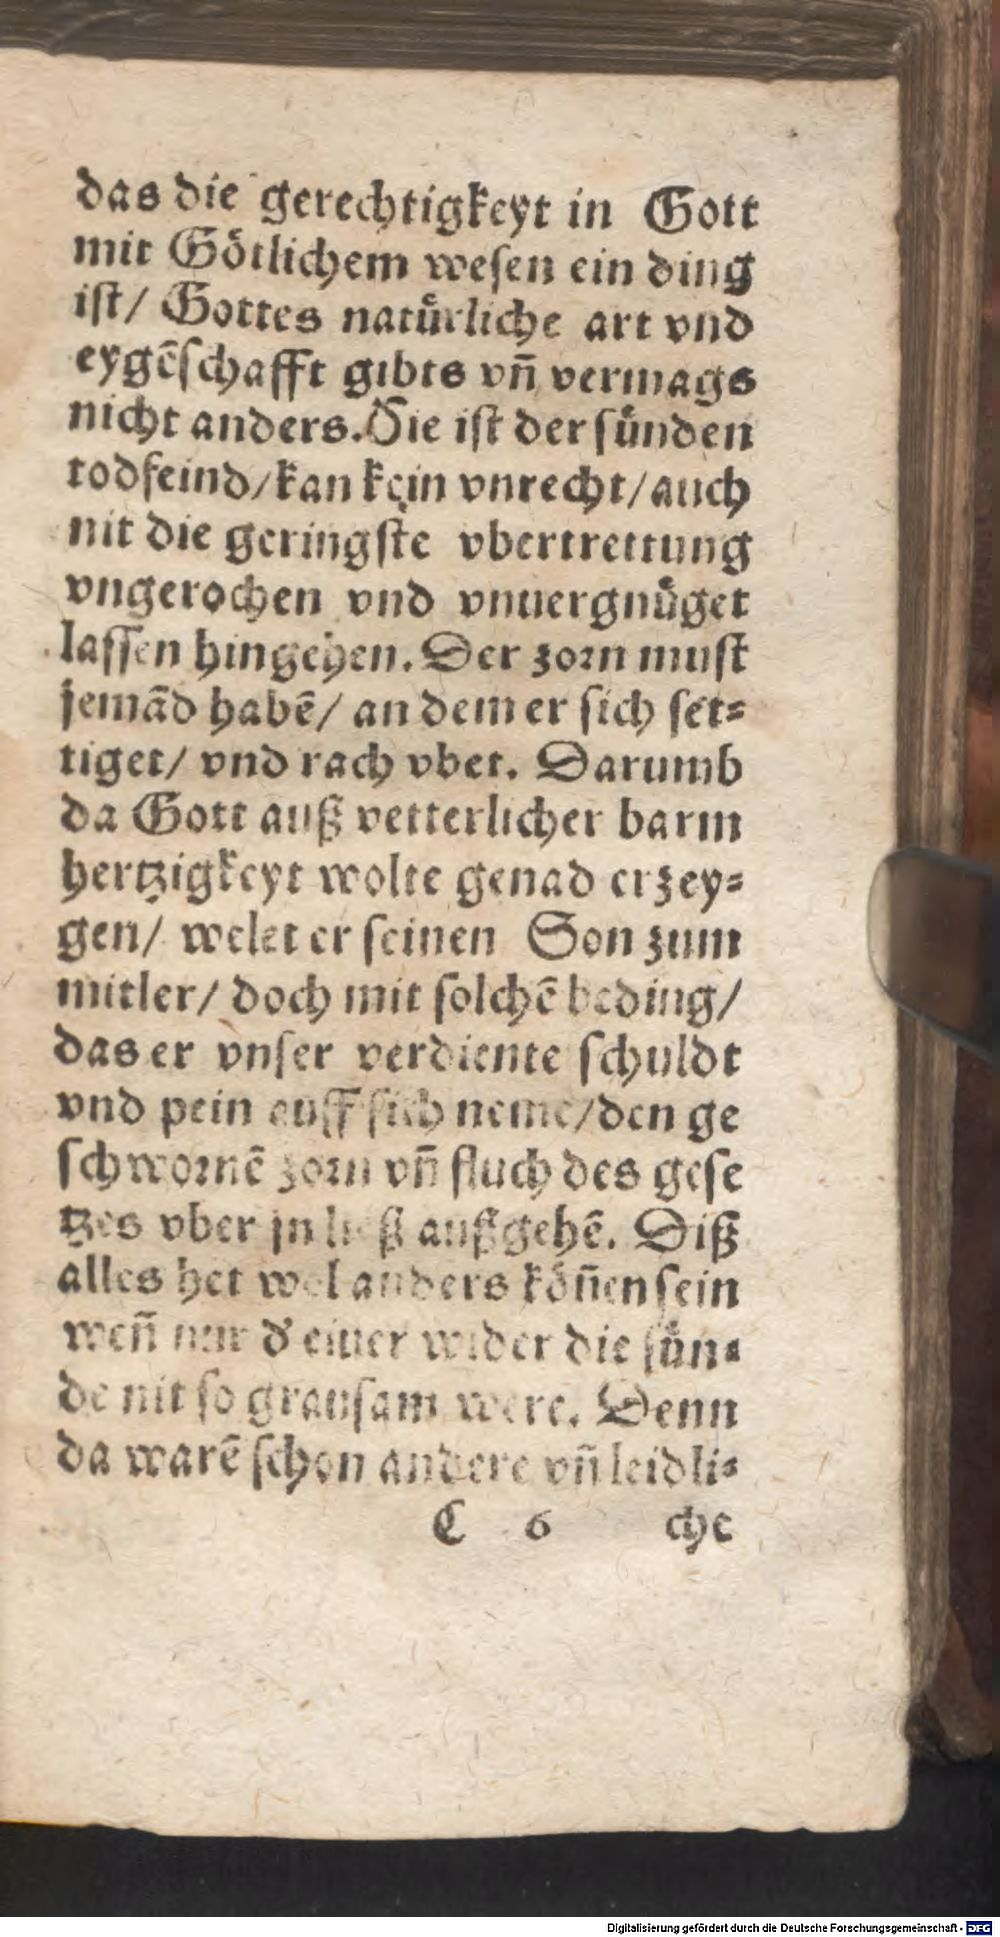 das die gerechtigkeyt in Gott
mit Götlichem wesen ein ding
ist/ Gottes natürliche art vnd
eygēschafft gibts vn̄ vermags
nicht anders. Die ist der sünden
todfeind/kan kein vnrecht/auch
nit die geringste vbertrettung
vngerochen vnd vnuergnüget
lassen hingehen. Der zorn must
jemād habē/ an dem er sich set⸗
tiget/ vnd rach vbet. Darumb
da Gott auß vetterlicher barm
hertzigkeyt wolte genad erzey⸗
gen/ welet er seinen Son zum
mitler/ doch mit solchē beding/
das er vnser verdiente schuldt
vnd pein auff sich neme/den ge
schwornē zorn vn̄ fluch des gese
tzes vber jn ließ außgehē. Diß
alles het wol anders kön̄en sein
wen̄ nur d' eiuer wider die sün⸗
de nit so grausam were. Denn
da warē schon andere vn̄ leidli⸗
C 6 che
Digitalisierung gefördert durch die Deutsche Forschungsgemeinschaft - DFG